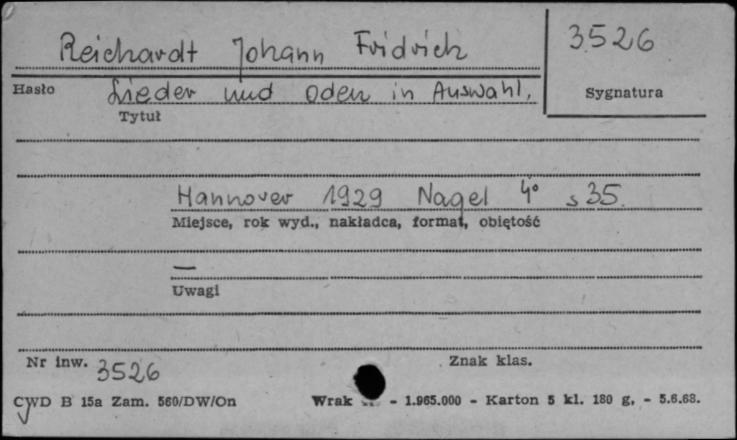 Reichardt Johann Fridrich
3526
Hasło
Lieder und Oden in Auswahl,
Sygnatura
Tytuł
Hannover 1929 Nagel 4° s 35.
Miejsce, rok wyd., nakładca, format, obiętość
—
Uwagi
Nr inw. 3526
Znak klas.
CWD B 15a Zam. 560/DW/On Wrak - 1.965.000 - Karton 5 kl. 180 g, - 5.6.68.